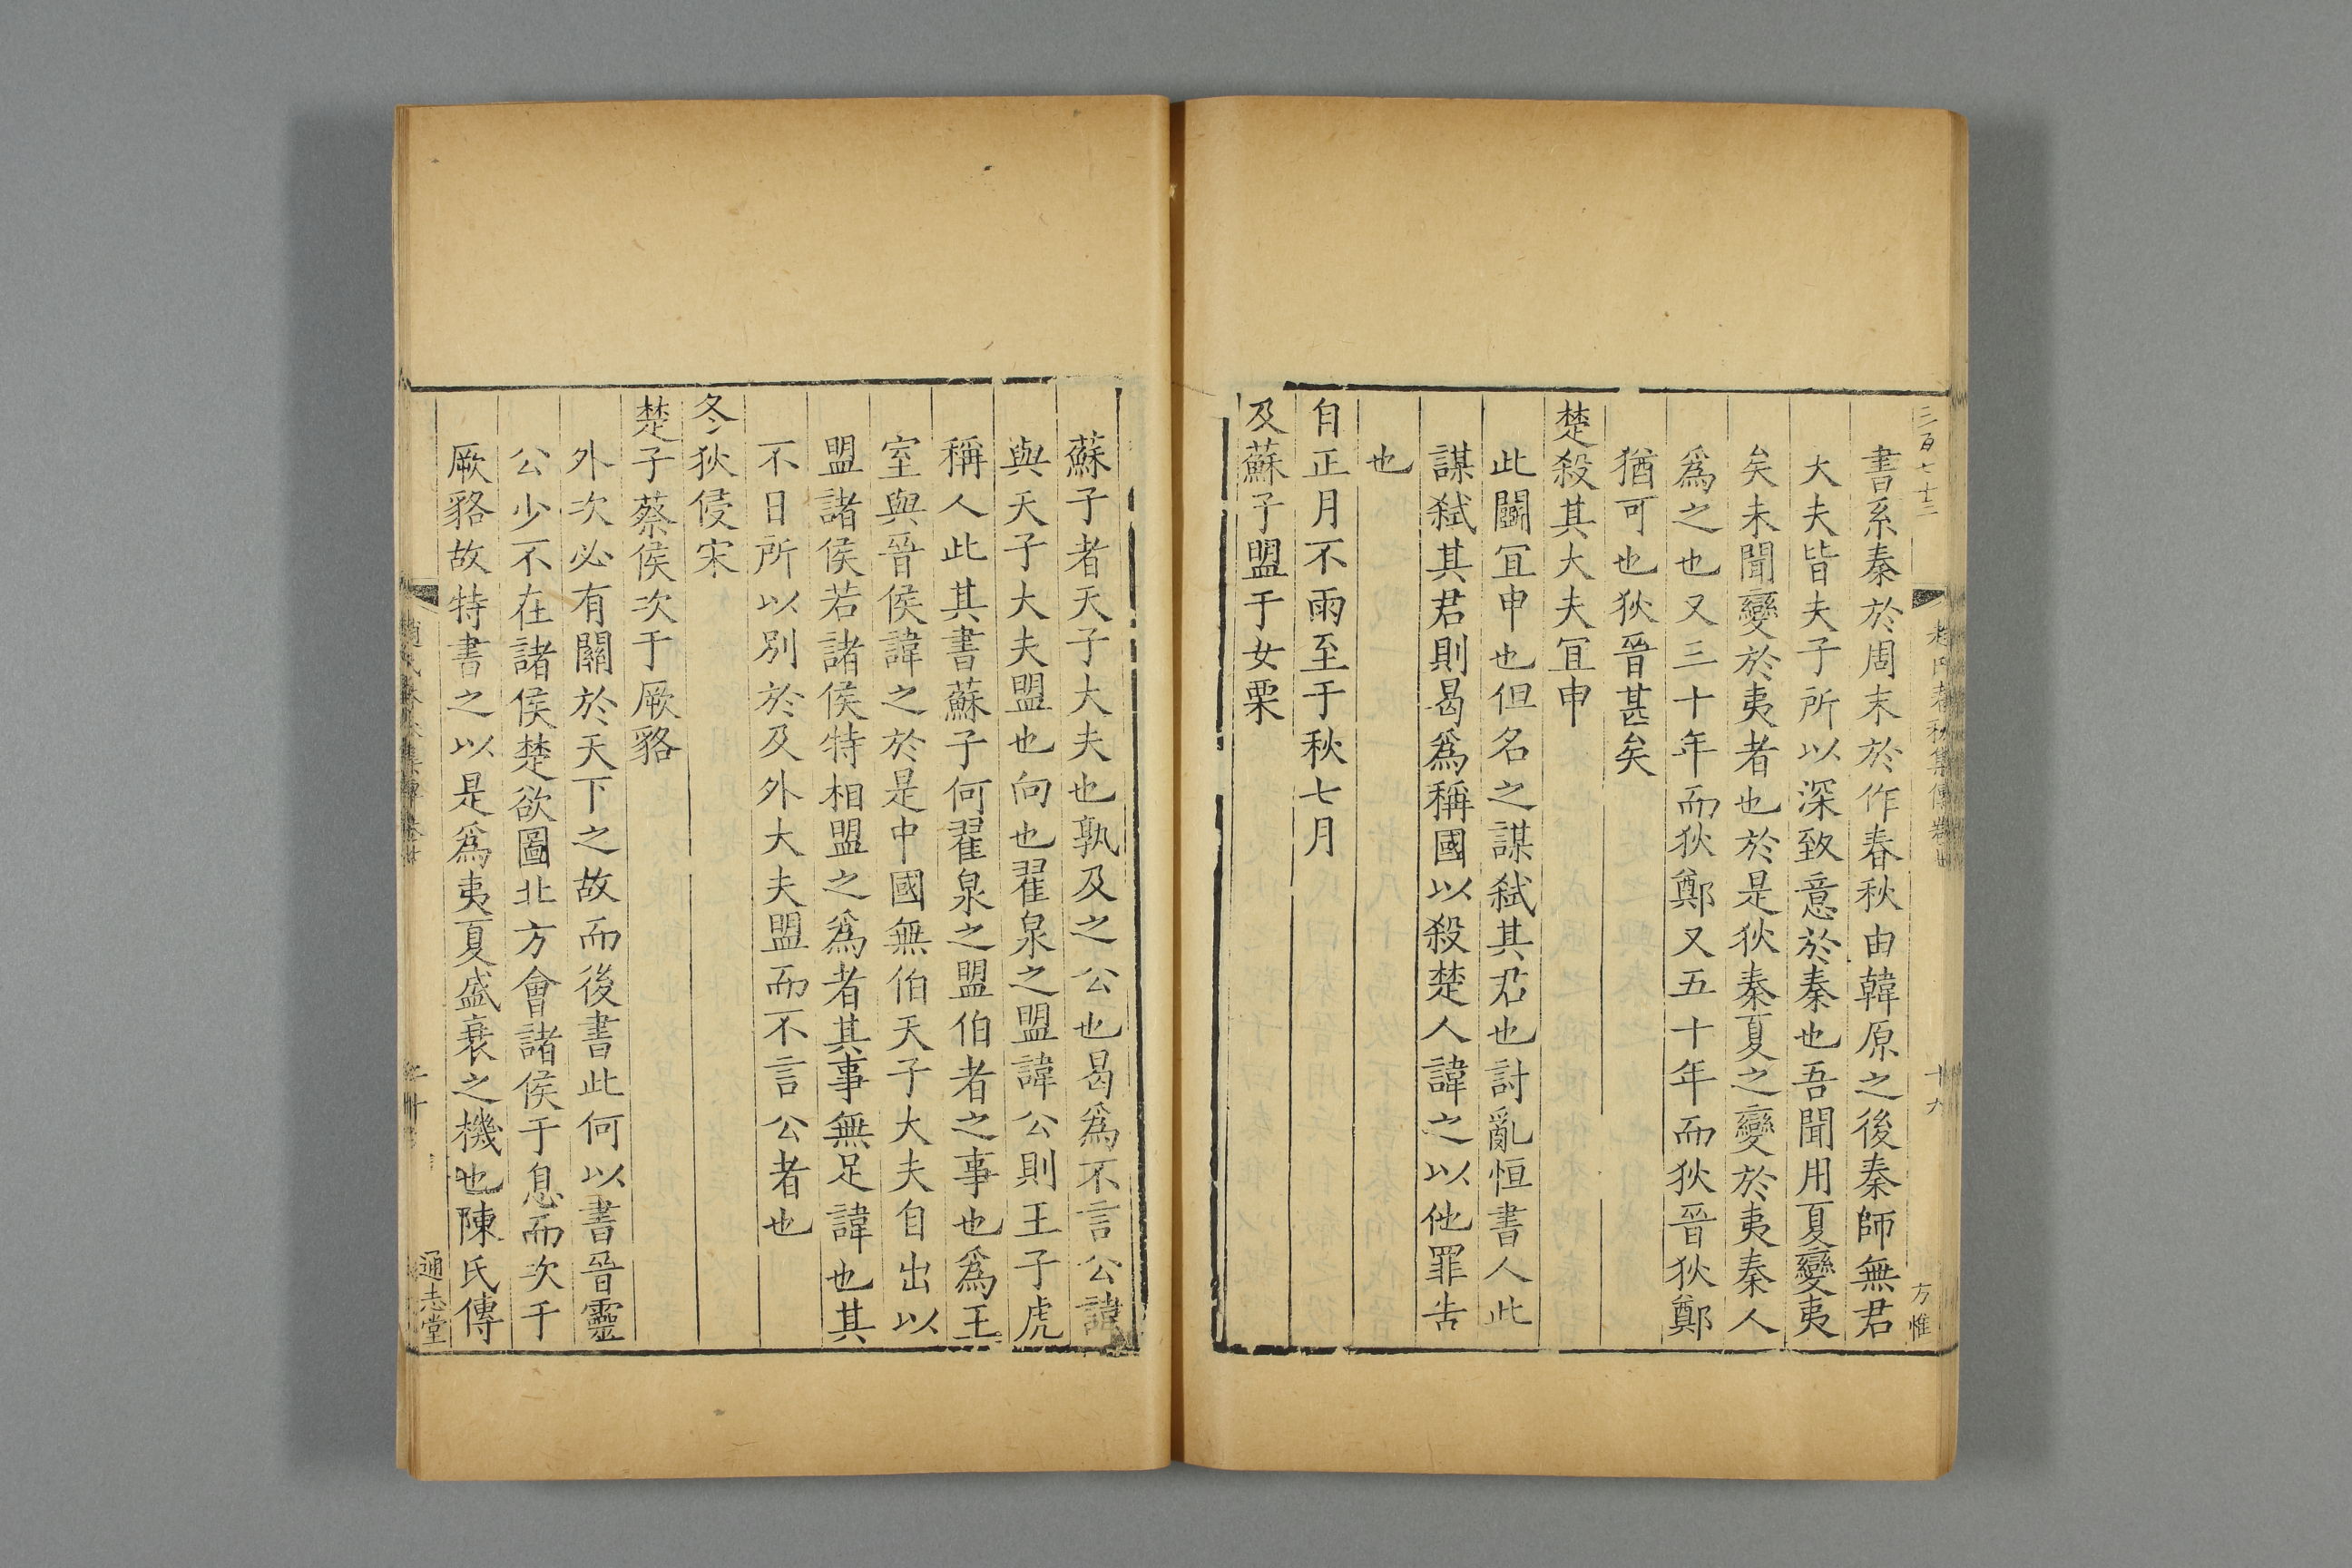 書系秦於周末於作春秋由韓原之後秦師無君
大夫皆夫子所以深致意於秦也吾聞用夏變夷
矣未聞變於夷者也於是狄秦夏之變於夷秦人
爲之也又三十年而狄鄭又五十年而狄晉狄鄭
猶可也狄晉甚矣
楚殺其大夫冝申
此鬬冝申也但名之謀弑其君也討亂恒書人此
謀弑其君則曷爲稱國以殺楚人諱之以他罪告
也
自正月不雨至于秋七月
及蘇子盟于女栗
蘇子者天子大夫也孰及之公也曷爲不言公諱
與天子大夫盟也向也翟泉之盟諱公則王子虎
稱人此其書蘇子何翟泉之盟伯者之事也爲王
室與晉侯諱之於是中國無伯天子大夫自出以
盟諸侯若諸侯特相盟之爲者其事無足諱也其
不日所以別於及外大夫盟而不言公者也
冬狄侵宋
楚子蔡侯次于厥貉
外次必有關於天下之故而後書此何以書晉靈
公少不在諸侯楚欲圖北方會諸侯于息而次于
厥貉故特書之以是爲夷夏盛衰之機也陳氏傳
三百七十三
趙氏春秋集傳卷
十九
方惟
通志堂